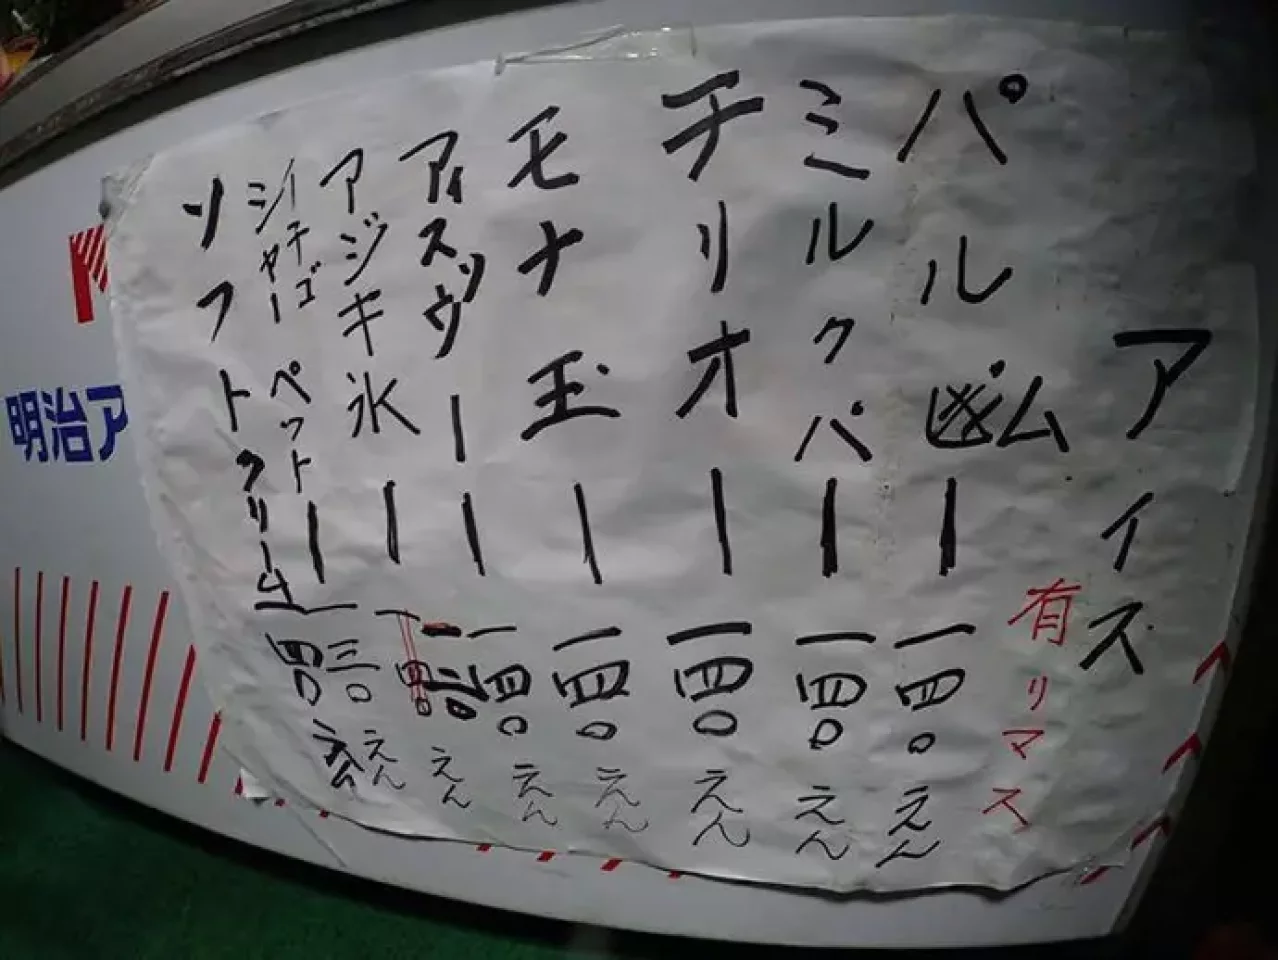 アイス
有リマス
パルム ー 一四〇えん
ミルクパー 一四〇えん
チリオー 一四〇えん
モナ王 ー 一四〇えん
アイスッウー ー 一四〇えん
アジキ氷 ー えん
イチゴ
シャーペット ー 三〇えん
ソフトクリーム 四〇えん
明治ア